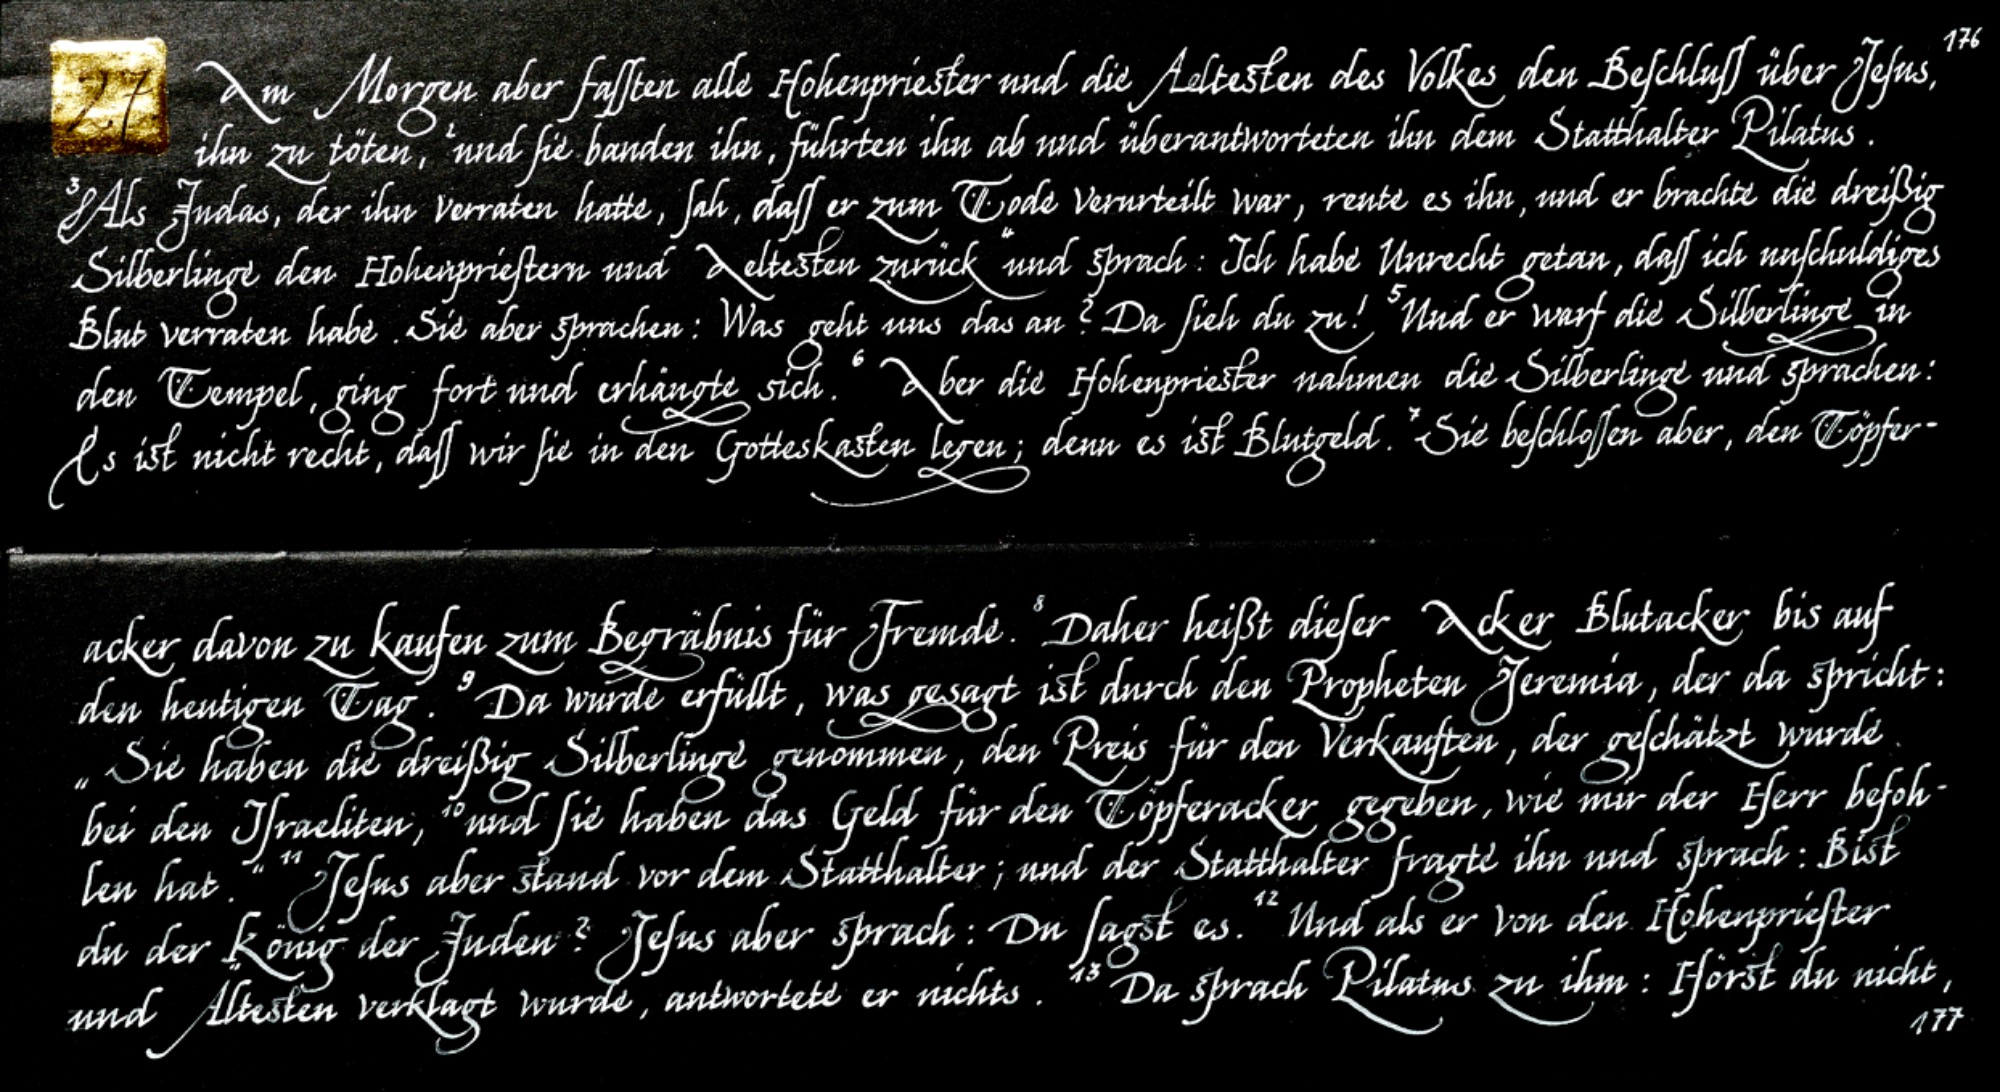 176
27 Am Morgen aber faſſten alle Hohenpriester und die Aeltesten des Volkes den Beſchluſſ über Jeſus,
ihn zu töten, ²und ſie banden ihn, führten ihn ab und überantworteten ihn dem Statthalter Pilatus.
³Als Judas, der ihn verraten hatte, ſah, daſſ er zum Tode verurteilt war, reute es ihn, und er brachte die dreißig
Silberlinge den Hohenprieſtern und Aeltesten zurück ⁴und sprach: Ich habe Unrecht getan, daſſ ich unſchuldiges
Blut verraten habe. Sie aber sprachen: Was geht uns das an? Da ſieh du zu! ⁵Und er warf die Silberlinge in
den Tempel, ging fort und erhängte sich. ⁶Aber die Hohenpriester nahmen die Silberlinge und sprachen:
Es ist nicht recht, daſſ wir ſie in den Gotteskasten legen; denn es ist Blutgeld. ⁷Sie beſchloſſen aber, den Töpfer-
acker davon zu kaufen zum Begräbnis für Fremde. ⁸Daher heißt dieſer Acker Blutacker bis auf
den heutigen Tag. ⁹Da wurde erfüllt, was gesagt ist durch den Propheten Jeremia, der da spricht:
„Sie haben die dreißig Silberlinge genommen, den Preis für den Verkauften, der geſchätzt wurde
bei den Iſraeliten, ¹⁰und ſie haben das Geld für den Töpferacker gegeben, wie mir der Herr befoh-
len hat.“ ¹¹Jeſus aber stand vor dem Statthalter; und der Statthalter fragte ihn und sprach: Bist
du der König der Juden? Jeſus aber sprach: Du ſagst es. ¹²Und als er von den Hohenprieſter
und Ältesten verklagt wurde, antwortete er nichts. ¹³Da sprach Pilatus zu ihm: Hörst du nicht,
177